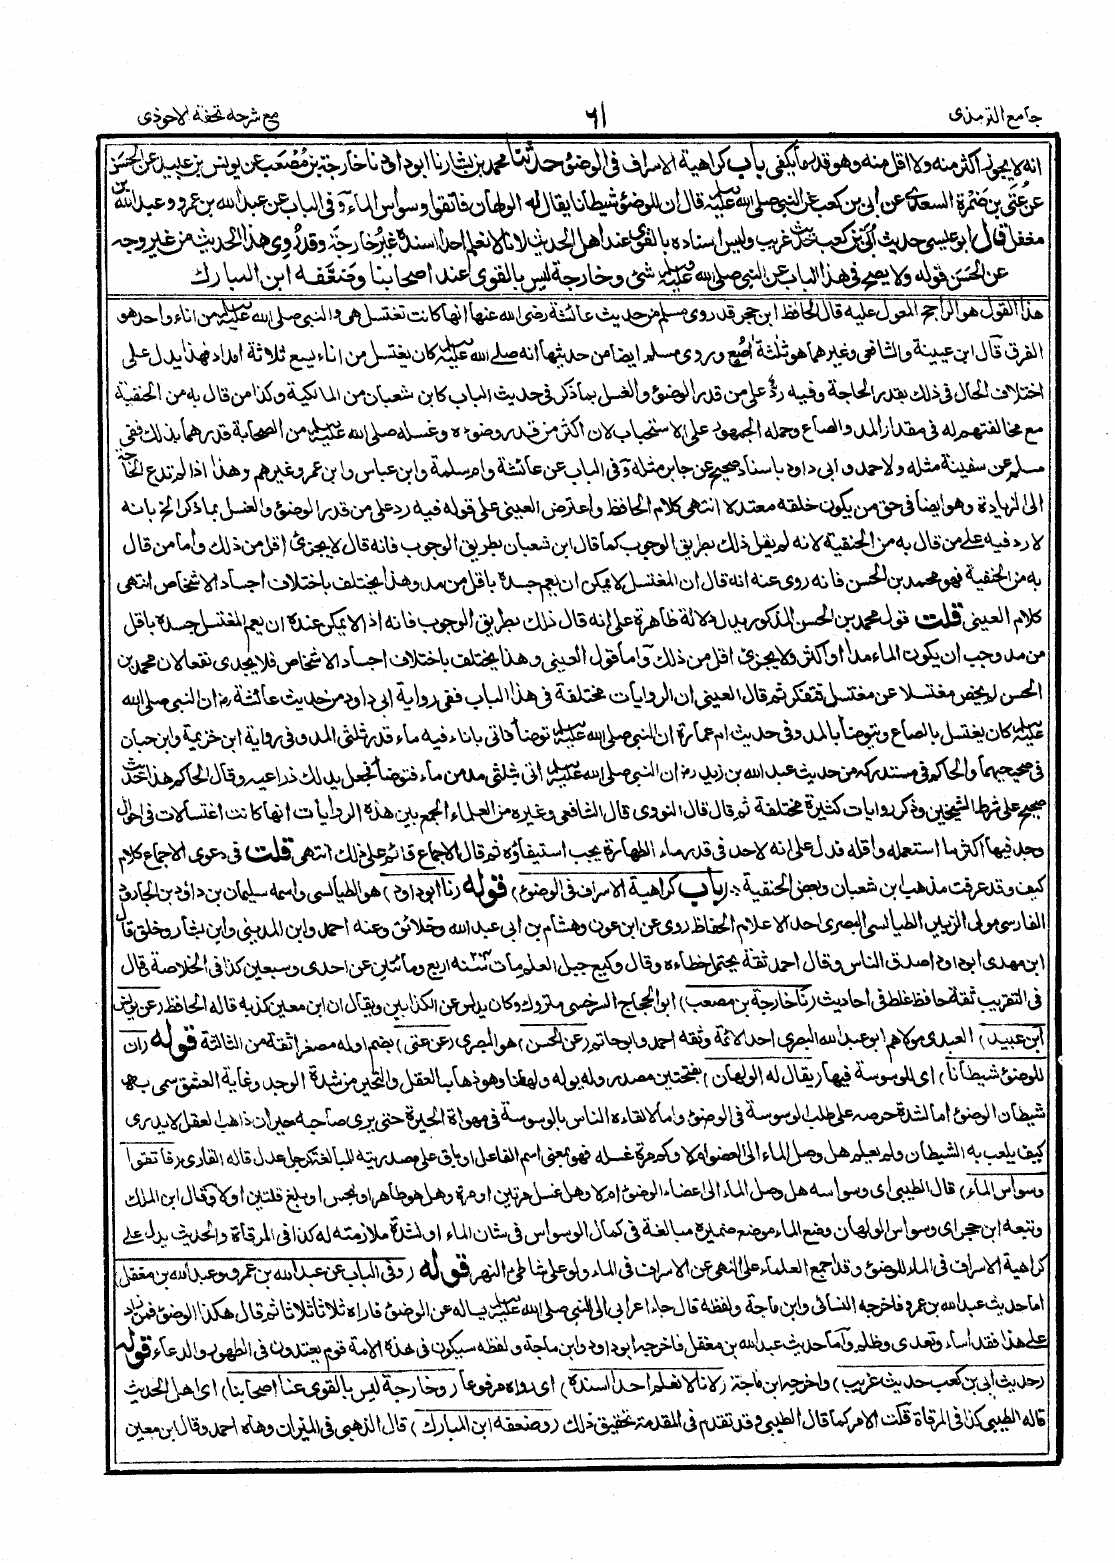 جامع الترمذى
٦١
مع شرحه تحفة الاحوذى
انه لا يجوز اكثر منه ولا اقل منه وهو قدر ما يكفى باب كراهية الاسراف فى الوضوء حدثنا محمد بن بشار نا ابو داود نا خارجة بن مصعب عن يونس بن عبيد عن الحسن
عن عتى بن ضمرة السعدى عن ابى بن كعب عن النبى صلى الله عليه وسلم قال ان للوضوء شيطانا يقال له الولهان فاتقوا وسواس الماء وفى الباب عن عبد الله بن عمرو وعبد الله بن
مغفل قال ابو عيسى حديث ابى بن كعب حديث غريب وليس اسناده بالقوى عند اهل الحديث لانا لا نعلم احدا اسنده غير خارجة وقد روى هذا الحديث من غير وجه
عن الحسن قوله ولا يصح فى هذا الباب عن النبى صلى الله عليه وسلم شئ وخارجة ليس بالقوى عند اصحابنا وضعفه ابن المبارك
هذا القول هو الراجح المعول عليه قال الحافظ ابن حجر قد روى مسلم من حديث عائشة رضى الله عنها انها كانت تغتسل هى والنبى صلى الله عليه وسلم من اناء واحد هو
الفرق قال ابن عيينة والشافعى وغيرهما هو ثلثة اصع وروى مسلم ايضا من حديثها انه صلى الله عليه وسلم كان يغتسل من اناء يسع ثلاثة امداد فهذا يدل على
اختلاف الحال فى ذلك بقدر الحاجة وفيه رد على من قدر الوضوء والغسل بما ذكر فى حديث الباب كابن شعبان من المالكية وكذا من قال به من الحنفية
مع مخالفتهم له فى مقدار المد والصاع وحمله الجمهور على الاستحباب لان اكثر من قدر وضوءه وغسله صلى الله عليه وسلم من الصحابة قدرهما بذلك ففى
مسلم عن سفينة مثله ولاحمد وابى داود باسناد صحيح عن جابر مثله وفى الباب عن عائشة وام سلمة وابن عباس وابن عمر وغيرهم وهذا اذا لم تدع الحاجة
الى الزيادة وهو ايضا فى حق من يكون خلقه معتدلا انتهى كلام الحافظ واعترض العينى على قوله فيه رد على من قدر الوضوء والغسل بما ذكر الخ بانه
لا رد فيه على من قال به من الحنفية لانه لم يقل ذلك بطريق الوجوب كما قال ابن شعبان بطريق الوجوب فانه قال لا يجزئ اقل من ذلك واما من قال
به من الحنفية فهو محمد بن الحسن فانه روى عنه انه قال ان المغتسل لا يمكن ان يعم جسده باقل من مد وهذا يختلف باختلاف اجساد الاشخاص انتهى
كلام العينى قلت قول محمد بن الحسن المذكور يدل دلالة ظاهرة على انه قال ذلك بطريق الوجوب فانه اذا لا يمكن عنده ان يعم المغتسل جسده باقل
من مد وجب ان يكون الماء مدا او اكثر ولا يجزئ اقل من ذلك واما قول العينى وهذا يختلف باختلاف اجساد الاشخاص فلا يجدى نفعا لان محمد بن
الحسن لم يخص مغتسلا عن مغتسل فتفكر ثم قال العينى ان الروايات مختلفة فى هذا الباب ففى رواية ابى داود من حديث عائشة رض ان النبى صلى الله
عليه وسلم كان يغتسل بالصاع ويتوضأ بالمد وفى حديث ام عمارة ان النبى صلى الله عليه وسلم توضأ فاتى باناء فيه ماء قدر ثلثى المد وفى رواية ابن خزيمة وابن حبان
فى صحيحيهما والحاكم فى مستدركه من حديث عبد الله بن زيد رض ان النبى صلى الله عليه وسلم اتى بثلثى مد من ماء فتوضأ فجعل يدلك ذراعيه وقال الحاكم هذا حديث
صحيح على شرط الشيخين وذكر روايات كثيرة مختلفة ثم قال قال النووى قال الشافعى وغيره من العلماء الجمع بين هذه الروايات انها كانت اغتسالات فى احوال
وجد فيها اكثر ما استعمله واقله فدل على انه لا حد فى قدر ماء الطهارة يجب استيفاؤه ثم قال الاجماع قائم على ذلك انتهى قلت فى دعوى الاجماع كلام
كيف وقد عرفت مذهب ابن شعبان وبعض الحنفية (باب كراهية الاسراف فى الوضوء) قوله (نا ابو داود) هو الطيالسى واسمه سليمان بن داود بن الجارود
الفارسى مولى الزبير الطيالسى البصرى احد الاعلام الحفاظ روى عن ابن عون وهشام بن ابى عبد الله وخلائق وعنه احمد وابن المدينى وابن بشار وخلق قال
ابن مهدى ابو داود اصدق الناس وقال احمد ثقة يحتمل خطاءه وقال وكيع جبل العلم مات سنة ٢٠٤ اربع ومائتين عن احدى وسبعين كذا فى الخلاصة قال
فى التقريب ثقة حافظ غلط فى احاديث (نا خارجة بن مصعب) ابو الحجاج السرخسى متروك وكان يدلس عن الكذابين ويقال ان ابن معين كذبه قاله الحافظ (عن يونس
ابن عبيد) العبدى مولاهم ابو عبد الله البصرى احد الائمة وثقه احمد وابو حاتم (عن الحسن) هو البصرى (عن عتى) بضم اوله مصغرا ثقة من الثالثة قوله (ان
للوضوء شيطانا) اى للوسوسة فيها (يقال له الولهان) بفتحتين مصدر وله يوله ولهانا وهو ذهاب العقل والتحير من شدة الوجد وغاية العشق سمى بها
شيطان الوضوء اما لشدة حرصه على طلب الوسوسة فى الوضوء واما لالقاءه الناس بالوسوسة فى مهواة الحيرة حتى يرى صاحبه حيران ذاهب العقل لا يدرى
كيف يلعب به الشيطان ولم يعلم هل وصل الماء الى العضو ام لا وكم مرة غسله فهو بمعنى اسم الفاعل او باق على مصدريته للمبالغة كرجل عدل قاله القارى (فاتقوا
وسواس الماء) قال الطيبى اى وسواسه هل وصل الماء الى اعضاء الوضوء ام لا وهل غسل مرتين او مرة وهل هو طاهر او نجس او بلغ قلتين او لا وقال ابن الملك
وتبعه ابن حجر اى وسواس الولهان وضع الماء موضع ضميره مبالغة فى كمال الوسواس فى شان الماء او لشدة ملازمته له كذا فى المرقاة والحديث يدل على
كراهية الاسراف فى الماء للوضوء وقد اجمع العلماء على النهى عن الاسراف فى الماء ولو على شاطئ النهر قوله (وفى الباب عن عبد الله بن عمرو وعبد الله بن مغفل)
اما حديث عبد الله بن عمرو فاخرجه النسائى وابن ماجة ولفظه قال جاء اعرابى الى النبى صلى الله عليه وسلم يساله عن الوضوء فاراه ثلاثا ثلاثا ثم قال هكذا الوضوء فمن زاد
على هذا فقد اساء وتعدى وظلم واما حديث عبد الله بن مغفل فاخرجه ابو داود وابن ماجة ولفظه سيكون فى هذه الامة قوم يعتدون فى الطهور والدعاء قوله
(حديث ابى بن كعب حديث غريب) واخرجه ابن ماجة (لانا لا نعلم احدا اسنده) اى رواه مرفوعا (وخارجة ليس بالقوى عند اصحابنا) اى اهل الحديث
قاله الطيبى كذا فى المرقاة قلت الامر كما قال الطيبى وقد تقدم فى المقدمة تحقيق ذلك (وضعفه ابن المبارك) قال الذهبى فى الميزان وهاه احمد وقال ابن معين